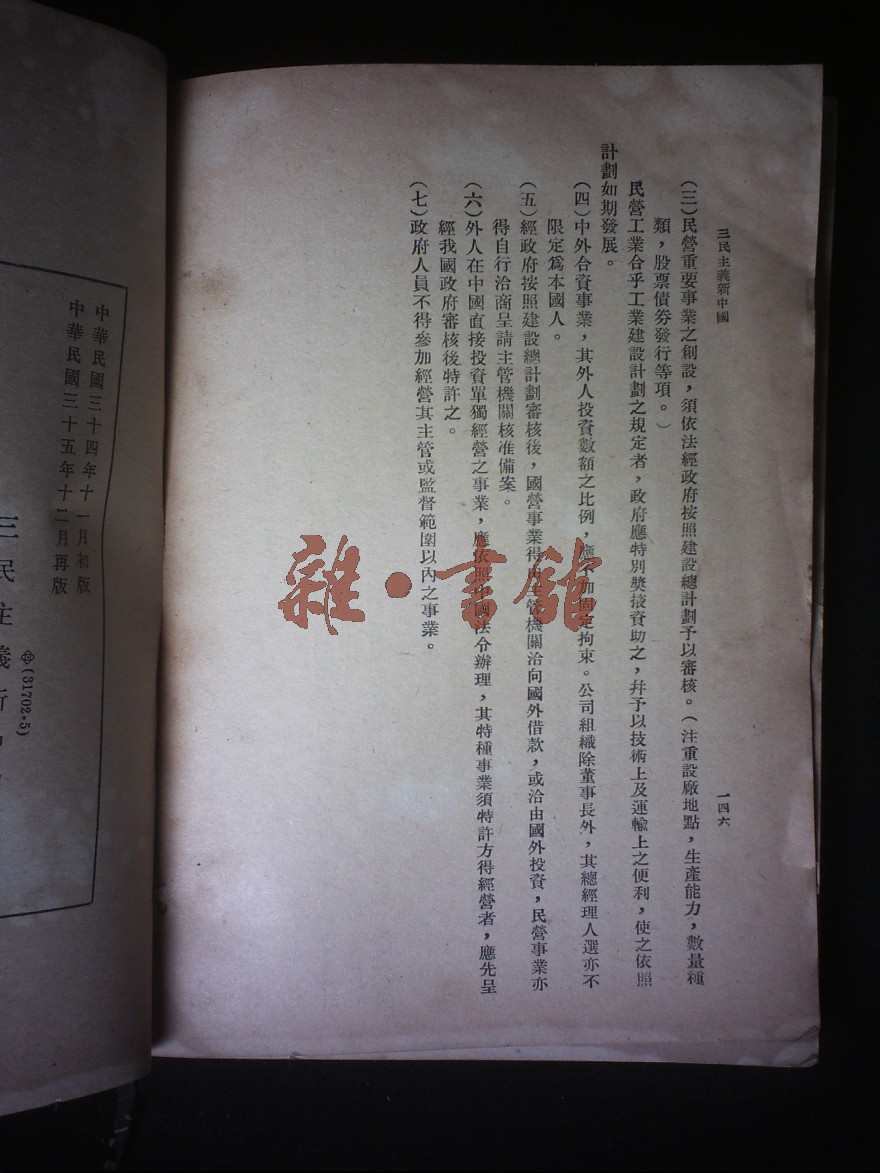 三民主義新中國
一四六
(三)民營重要事業之創設,須依法經政府按照建設總計劃予以審核。(注重設廠地點,生產能力,數量種
類,股票債券發行等項。)
民營工業合乎工業建設計劃之規定者,政府應特別獎掖資助之,幷予以技術上及運輸上之便利,使之依照
計劃如期發展。
(四)中外合資事業,其外人投資數額之比例,應不加固定拘束。公司組織除董事長外,其總經理人選亦不
限定爲本國人。
(五)經政府按照建設總計劃審核後,國營事業得由主管機關洽向國外借款,或洽由國外投資,民營事業亦
得自行洽商呈請主管機關核准備案。
(六)外人在中國直接投資單獨經營之事業,應依照中國法令辦理,其特種事業須特許方得經營者,應先呈
經我國政府審核後特許之。
(七)政府人員不得參加經營其主管或監督範圍以內之事業。
雜·書館
中華民國三十四年十一月初版
中華民國三十五年十二月再版
(31702·5)
三民主義新中